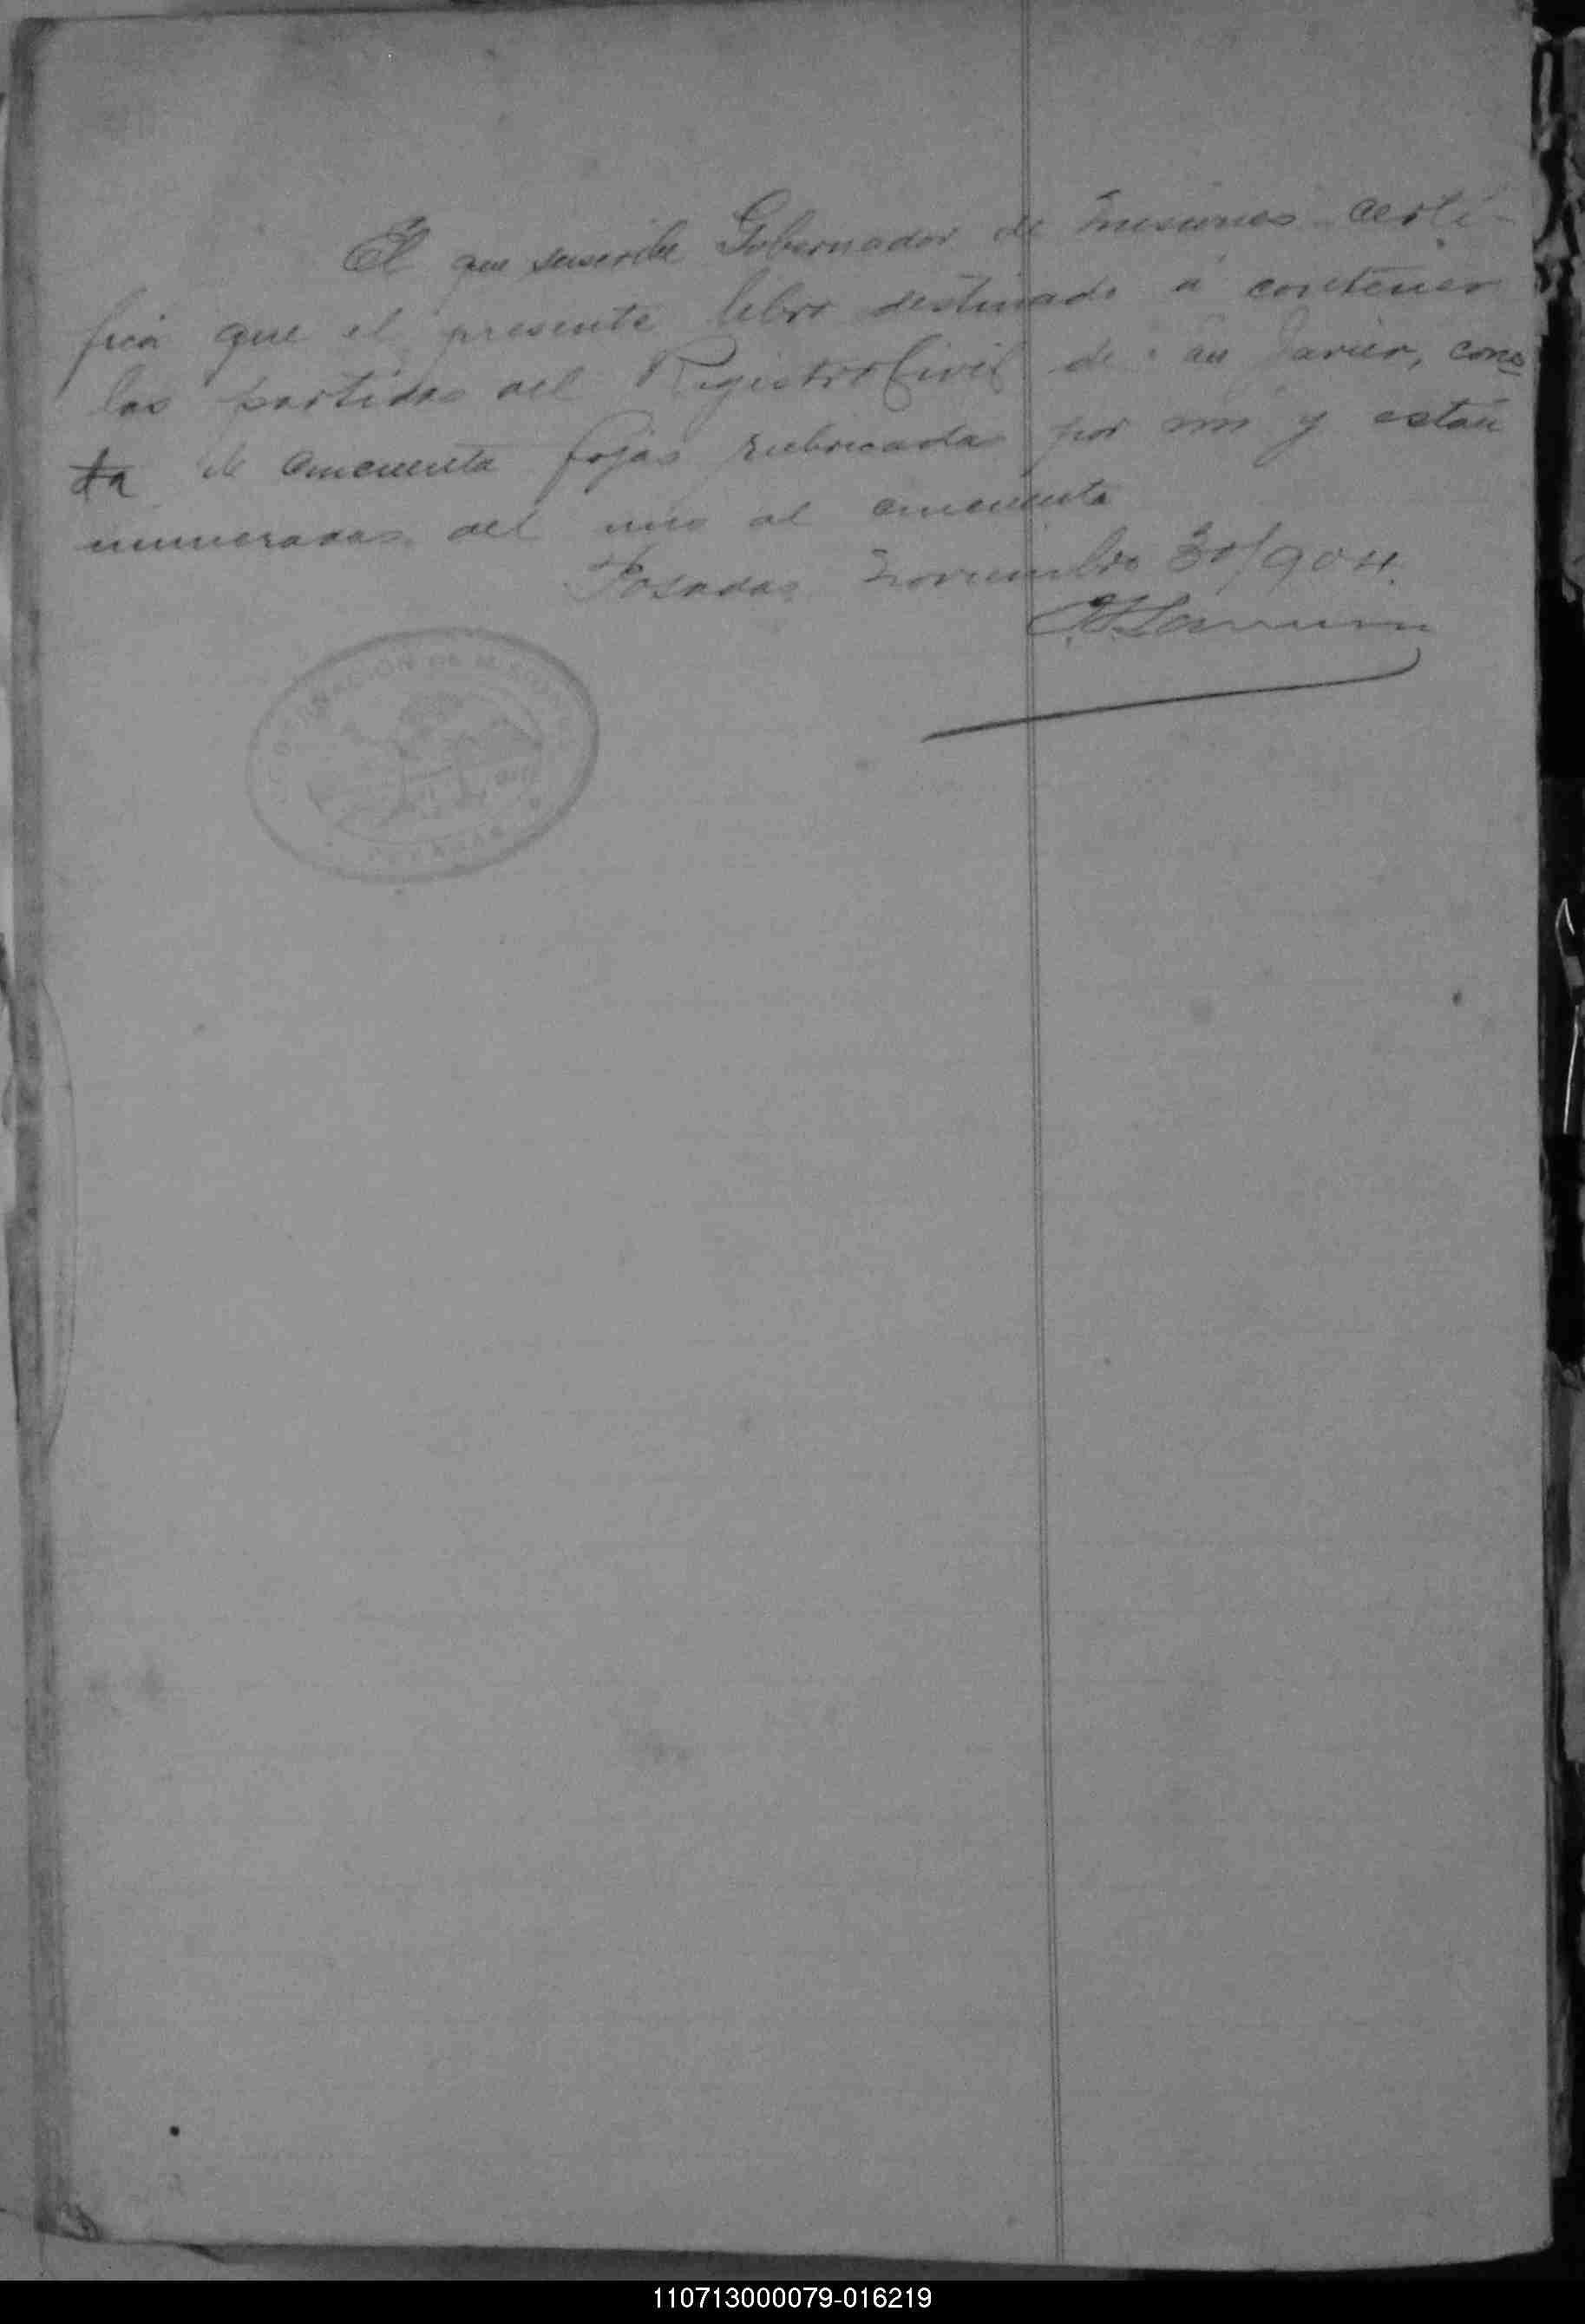 El que suscribe Gobernador de Misiones certi-
fica que el presente libro destinado á contener
las partidas del Registro Civil de San Javier, cons
ta de cincuenta fojas rubricadas por mi y están
numeradas del uno al cincuenta
Posadas Noviembre 30/904.
GOBERNACION DE MISIONES
POSADAS
110713000079-016219